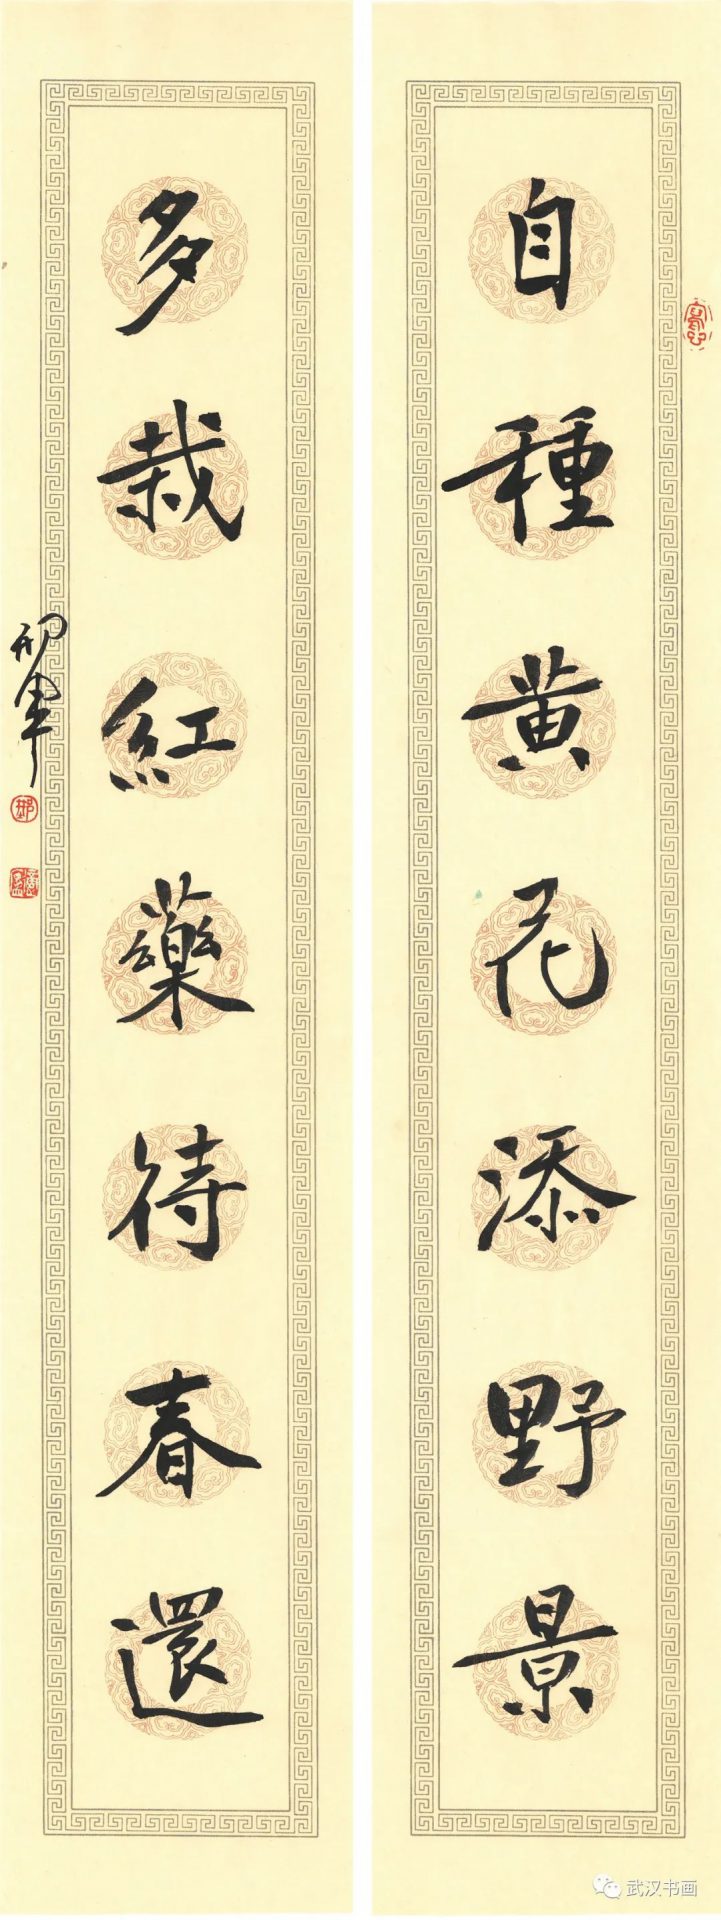 自種黄花添野景
多栽紅藥待春還
武汉书画